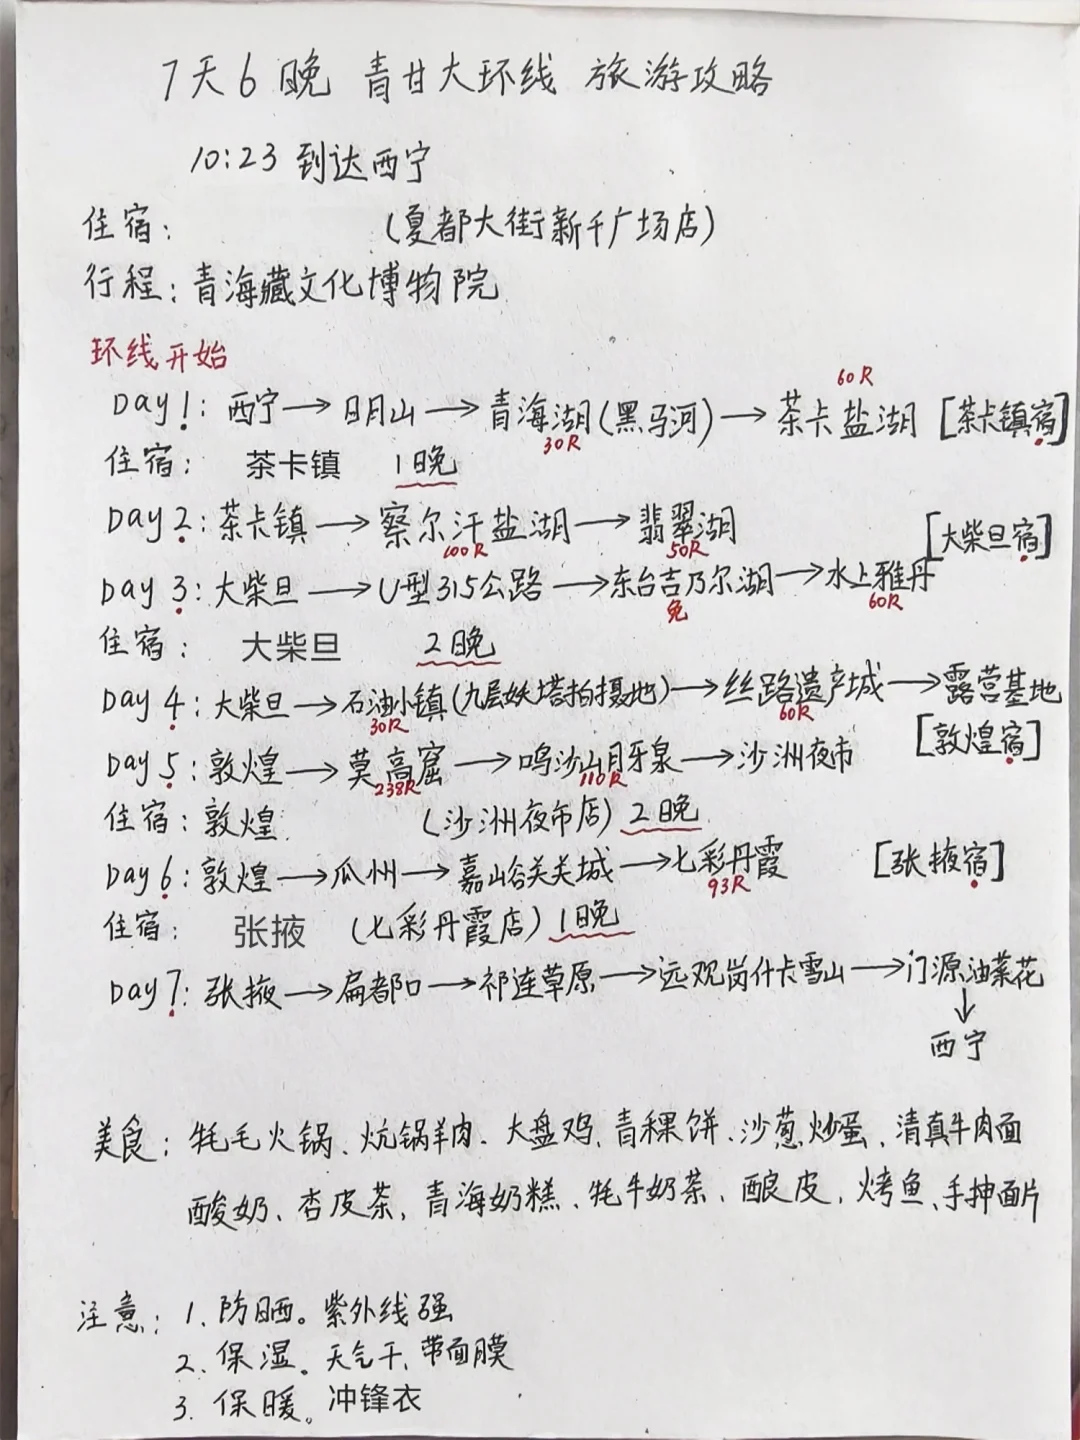 7天6晚 青甘大环线 旅游攻略
10:23 到达西宁
住宿: (夏都大街新千广场店)
行程: 青海藏文化博物院
环线开始
60R
Day 1: 西宁→日月山→青海湖(黑马河)→茶卡盐湖 [茶卡镇宿]
30R
住宿: 茶卡镇 1晚
Day 2: 茶卡镇→察尔汗盐湖→翡翠湖 [大柴旦宿]
100R 50R
Day 3: 大柴旦→U型315公路→东台吉乃尔湖→水上雅丹
免 60R
住宿: 大柴旦 2晚
Day 4: 大柴旦→石油小镇(九层妖塔拍摄地)→丝路遗产城→露营基地
30R 60R [敦煌宿]
Day 5: 敦煌→莫高窟→鸣沙山月牙泉→沙洲夜市
238R 110R
住宿: 敦煌 (沙洲夜市店) 2晚
Day 6: 敦煌→瓜州→嘉峪关关城→七彩丹霞 [张掖宿]
93R
住宿: 张掖 (七彩丹霞店) 1晚
Day 7: 张掖→扁都口→祁连草原→远观岗什卡雪山→门源油菜花
↓
西宁
美食: 牦毛火锅、炕锅羊肉、大盘鸡、青稞饼、沙葱炒蛋、清真牛肉面
酸奶、杏皮茶、青海奶糕、牦牛奶茶、酿皮、烤鱼、手抻面片
注意: 1. 防晒。紫外线强
2. 保湿。天气干、带面膜
3. 保暖。冲锋衣